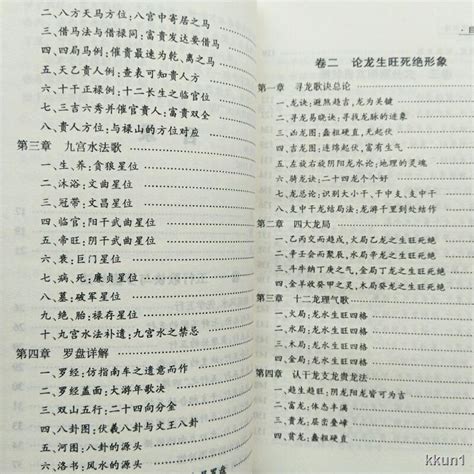 二、八方天马方位:八宫中寄居之马
三、借马法与借禄同:富贵发达要借马
四、四局马例:催贵最速为乾、离之马
五、天乙贵人例:查表可知贵人方
六、十干正禄例:十二长生之临官位
七、三吉六秀并催官贵人:富贵双全
八、贵人方位:与禄山的方位对应
第三章 九宫水法歌
一、生、养:贪狼星位
二、沐浴:文曲星位
三、冠带:文昌星位
四、临官:阳干武曲星位
五、帝旺:阴干武曲星位
六、衰:巨门星位
七、病、死:廉贞星位
八、墓:破军星位
九、绝、胎:禄存星位
十、九宫水法补遗:九宫水之禁忌
第四章 罗盘详解
一、罗经:仿指南车之遗意而作
二、罗经盖面:大游年歌决
三、双山五行:二十四向分金
四、八卦图:伏羲八卦与文王八卦
五、河图:八卦的源头
六、洛书:风水的源头
卷二 论龙生旺死绝形象
第一章 寻龙歌诀总论
一、龙诀:避煞趋吉,龙为关键
二、寻龙易晓诀:寻找龙脉的迹象
三、凶龙图:矗粗硬直,无以剥换
四、吉龙图:连绵起伏,富有生气
五、左旋右旋阴阳龙水论:地理的灵魂
六、骑龙诀:二十四龙个个好
七、龙总论:识别大小干、干中支、支中干
八、支中干龙结局法:龙游千里到处结作
第二章 四大龙局
一、乙丙交而趋戌,火局乙龙之生旺死绝
二、辛壬会而聚辰,水局辛龙之生旺死绝
三、斗牛纳丁庚之气,金局丁龙之生旺死绝
四、金羊收癸甲之灵,木局癸龙之生旺死绝
第三章 十二龙理气歌
一、火局:龙水生旺四格
二、水局:龙水生旺四格
三、木局:龙水生旺四格
四、金局:龙水生旺四格
第四章 认干龙支龙贵龙法
一、趋生趋旺:阴龙阳龙皆可为吉
二、富龙:体态丰满
三、贵龙:层峦叠嶂
四、贫龙:矗粗硬直
kkun1